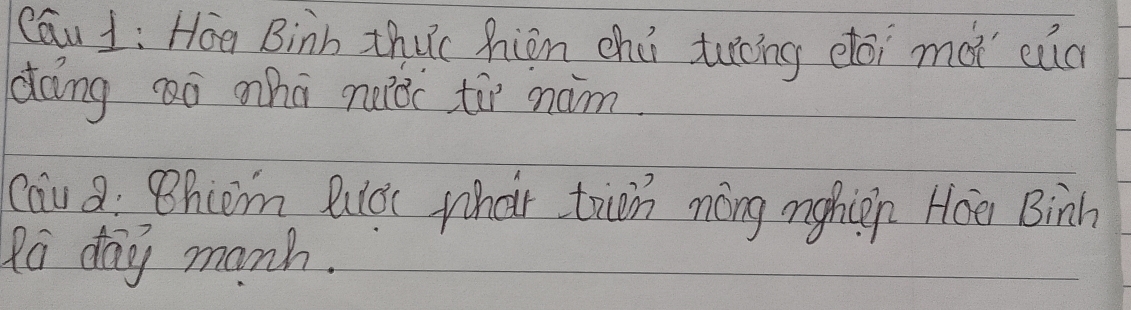 Câu 1: Hòa Bình thực hiện chủ trương đổi mới của
đảng và nhà nước từ năm.
Câu 2: Chiếm lược phát triển nông nghiệp Hòa Bình
là đẩy mạnh.